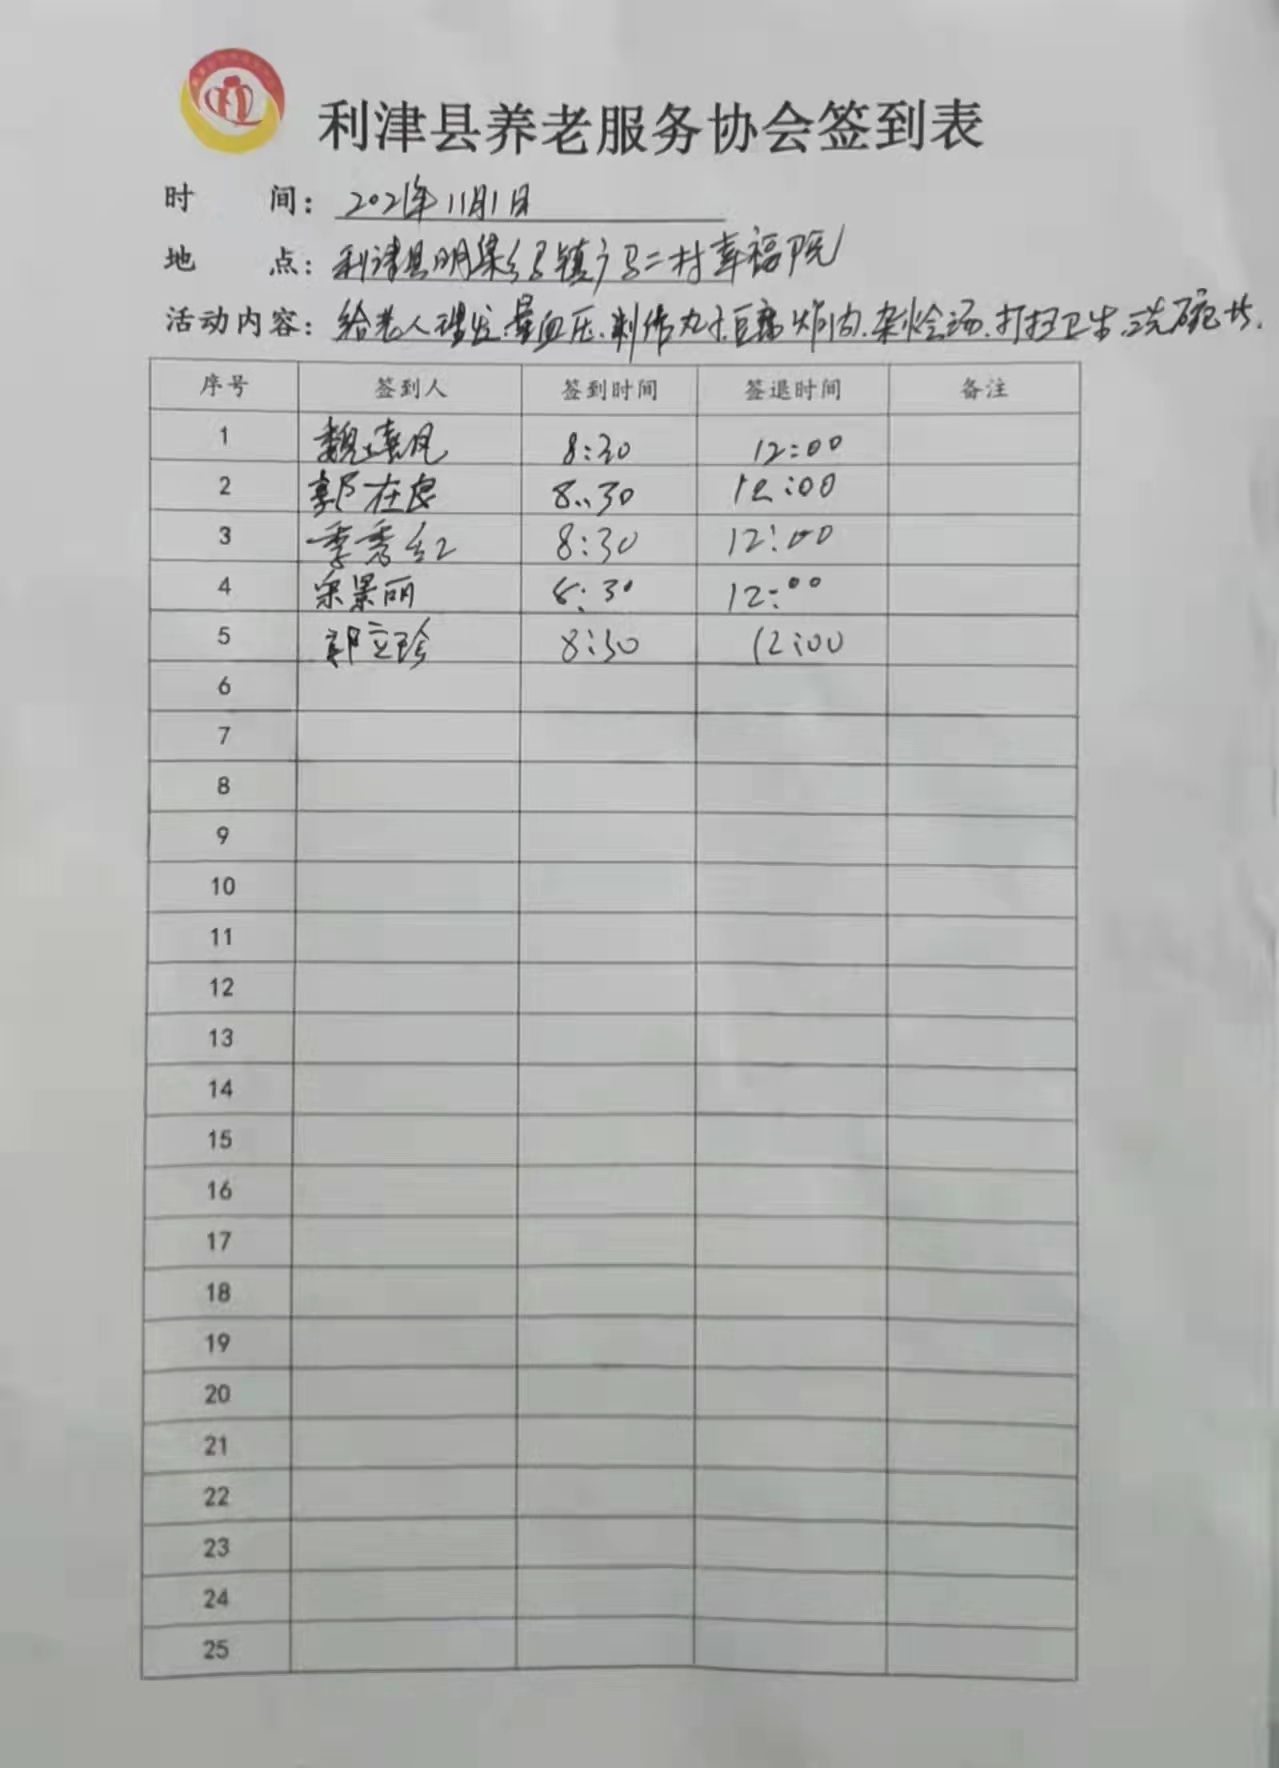 利津县养老服务协会签到表
时 间: 2021年11月1日
地 点: 利津县明集乡 镇 马二村幸福院
活动内容: 给老人理发、量血压、制作丸子、豆腐、炸肉、杂烩汤、打扫卫生、洗碗
序号 签到人 签到时间 签退时间 备注
1 魏 8:30 12:00
2 郭在良 8:30 12:00
3 季秀红 8:30 12:00
4 宋景丽 8:30 12:00
5 郭立珍 8:30 12:00
6
7
8
9
10
11
12
13
14
15
16
17
18
19
20
21
22
23
24
25